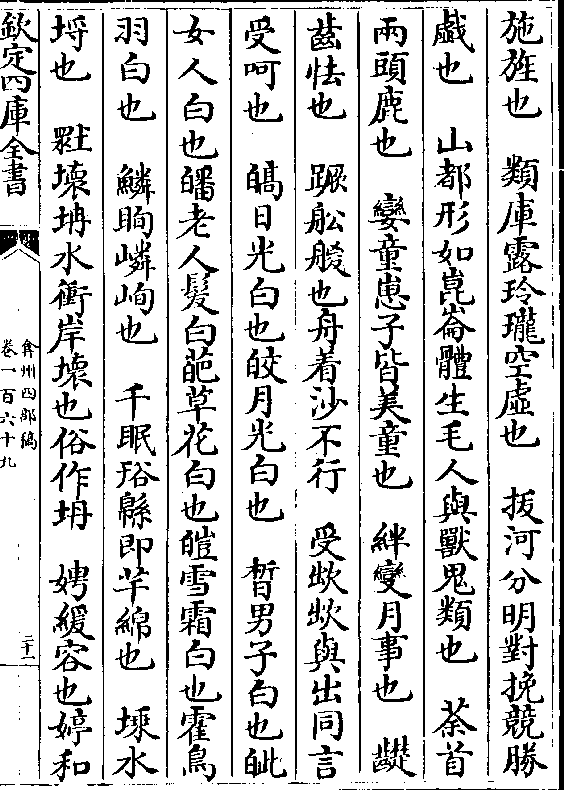 施旌也　類庫露玲瓏空虛也　拔河分明對挽競勝
戲也　山都形如崑崙體生毛人與獸鬼類也　荼首
兩頭鹿也　孌童崽子皆美童也　姅變月事也　齼
齒怯也　䠇舩艐也舟着沙不行　受欪欪與出同言
受呵也　皜日光白也皎月光白也　晳男子白也皉
女人白也皤老人髮白葩草花白也皚雪霜白也靃鳥
羽白也　鱗眴嶙峋也　千眠𧮰緜即芊綿也　埰水
埒也　壞坍水衝岸壞也俗作坍　娉緩容也婷和
欽定四庫全書
弇州四部稿
卷一百六十九
三十一